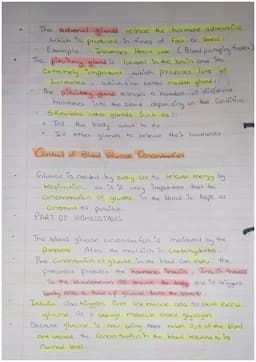 The adrenal gland release the hormone adrenaline
which is produced in times of fear or stress.
Example: Increases heart rate (Blood pumping faster)
The pituitary gland is located in the brain and its
extremely important which produces lots of
hormones, which also called master gland.
The pituitary gland releases a number of different
hormones into the blood depending on the condition.
Stimulates other glands such as:
Tell the body what to do
Tell other glands to release their hormones
Control of Blood Glucose Concentration
Glucose is needed by every cell to release energy by
respiration, so it is very important that the
concentration of glucose in the blood is kept as
constant as possible.
PART OF HOMEOSTASIS
The blood glucose concentration is monitored by the
pancreas. After the meal rich in carbohydrates.
The concentration of glucose in the blood can rise, the
pancreas produces the hormone insulin. This is
in the bloodstream all around the body and it triggers
body cells to take up glucose from the blood
Insulin also triggers liver and muscle cells to store excess
glucose as a storage molecule called glycogen
Because glucose is now being taken out of the blood
the concentration in the blood returns to its
normal level.